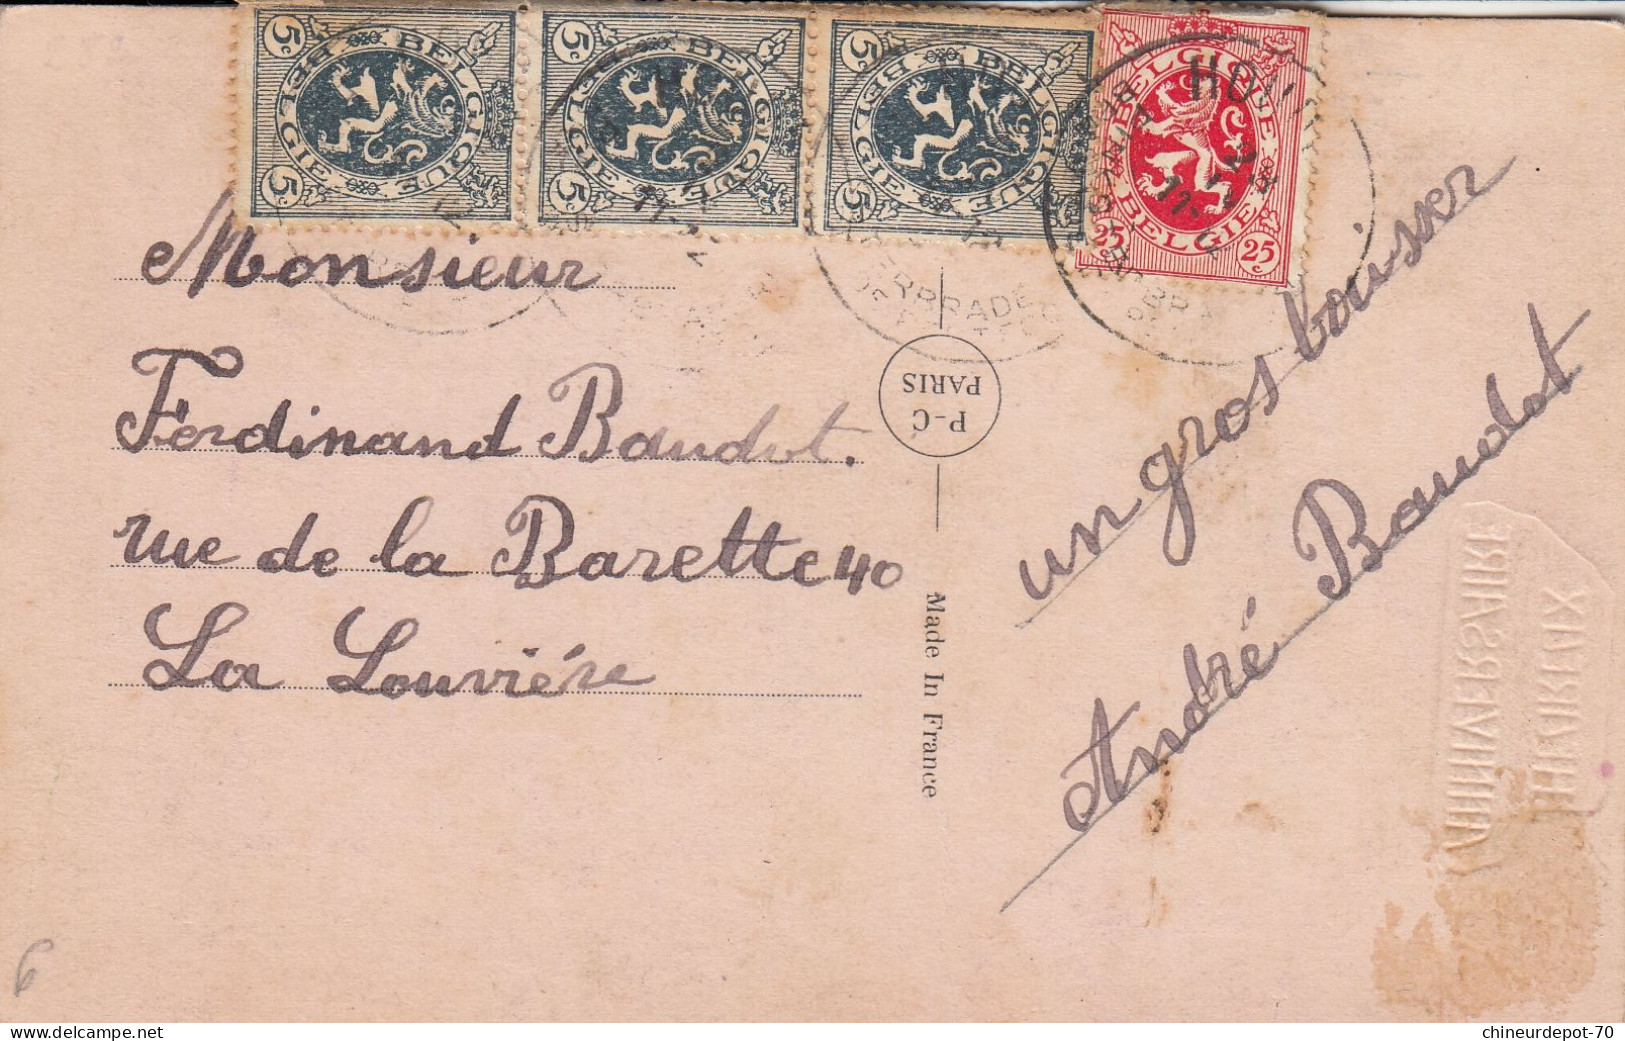 5c BELGIQUE 5c BELGIE
5c BELGIQUE 5c BELGIE
5c BELGIQUE 5c BELGIE
BELGIQUE
25c BELGIE 25c
Monsieur
Ferdinand Baudot.
rue de la Barette 40
La Louviére
P-C
PARIS
Made In France
un gros boisser
André Baudot
HEUREUX
ANNIVERSAIRE
6
chineurdepot-70